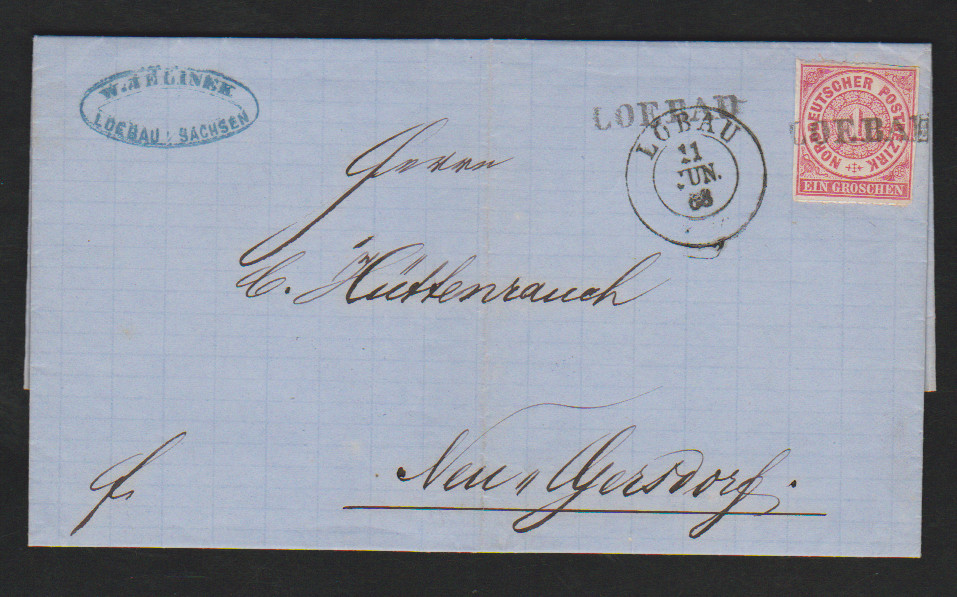 W. JELINEK
LOEBAU i. SACHSEN
LOEBAU
LÖBAU
11
JUN.
68
NORDDEUTSCHER POSTBEZIRK
1
EIN GROSCHEN
LOEBAU
Herrn
C. Hüttenrauch
Neu-Gersdorf.
fr.